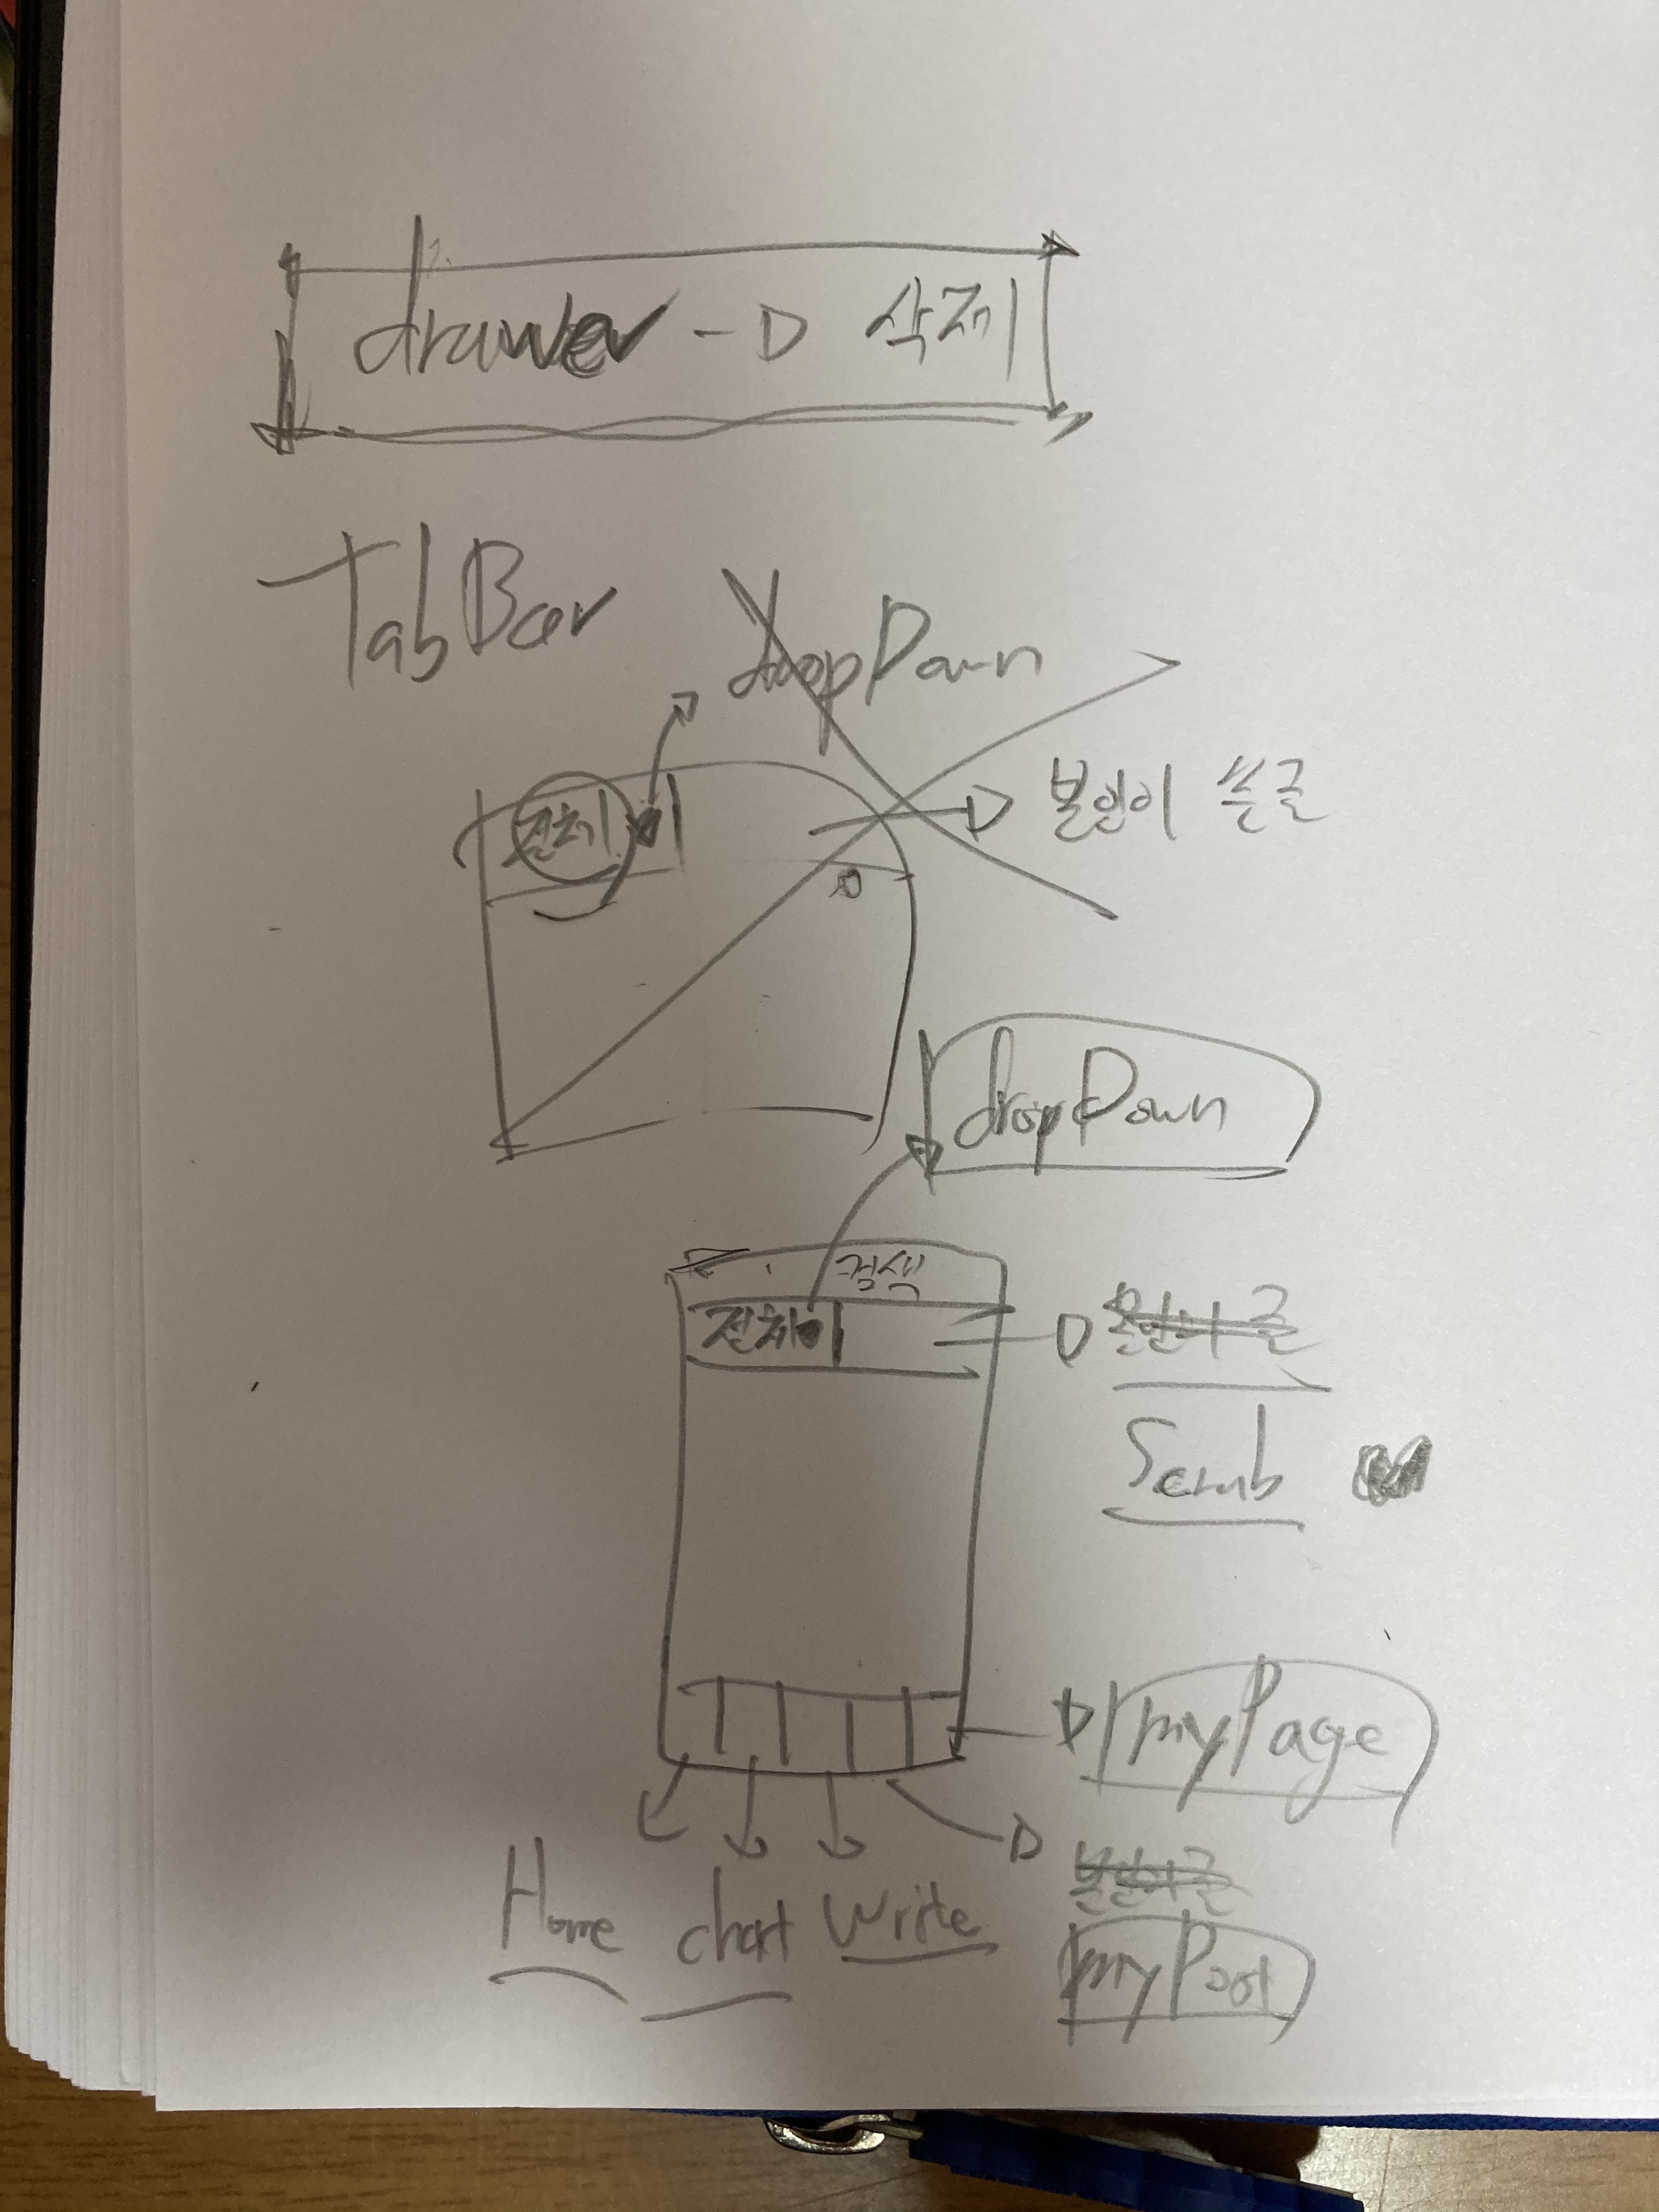 drawer → 삭제
TabBar
dropDown
전체
본인이 쓴글
dropDown
검색
전체
본인의 글
Scrab
myPage
Home chart write
본인의 글
myPost